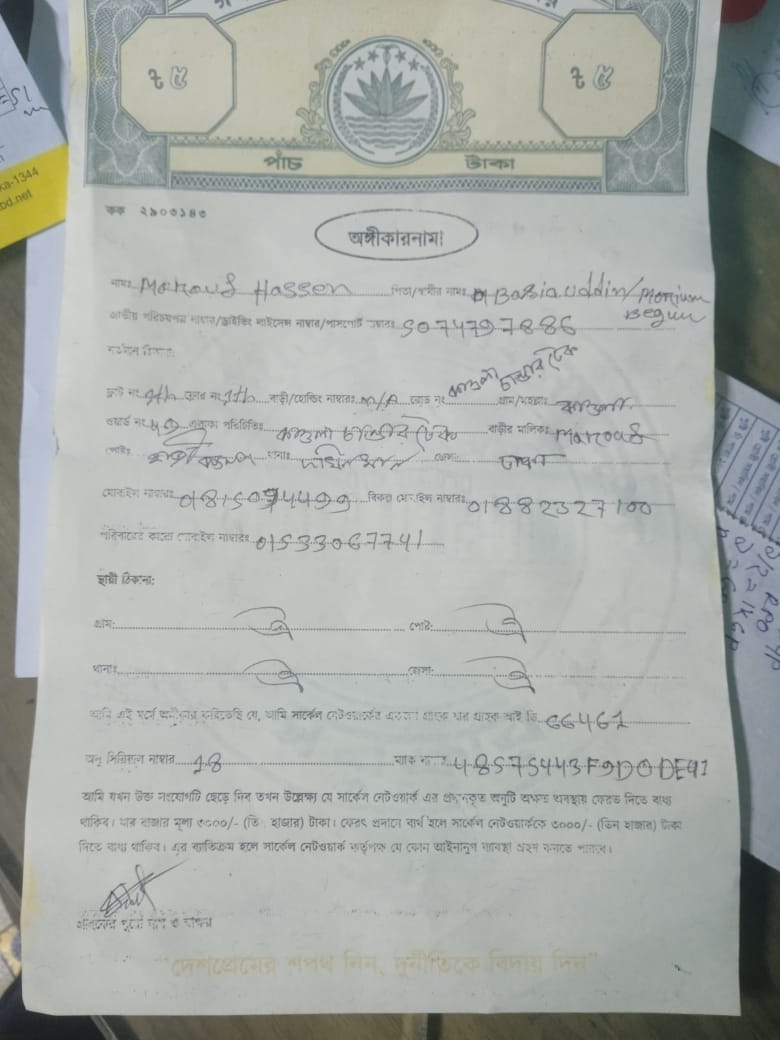 ৳ ৫ ৳ ৫
পাঁচ টাকা
কক ২৯০৩১৪৩
অঙ্গীকারনামা
নামঃ Marouf Hassen পিতা/স্বামীর নামঃ Basiauddin/ Morium Begum
জাতীয় পরিচয়পত্র নাম্বার/ড্রাইভিং লাইসেন্স নাম্বার/পাসপোর্ট নাম্বারঃ 5074797886
বর্তমান ঠিকানা:
ফ্লাট নং 9th তলার নং বাড়ী/হোল্ডিং নাম্বারঃ N/A রোড নং চান্ডার টেক গ্রাম/মহল্লাঃ কাওলা
ওয়ার্ড নং 49 এলাকা পরিচিতিঃ কাওলা চান্ডার টেক বাড়ীর মালিকঃ Marouf
পোষ্টঃ থানাঃ জেলাঃ ঢাকা
মোবাইল নাম্বারঃ বিকল্প মোবাইল নাম্বারঃ 01882327100
পরিবারের কারো মোবাইল নাম্বারঃ 01533067741
স্থায়ী ঠিকানা:
গ্রাম: ঐ পোষ্ট: ঐ
থানাঃ ঐ জেলা: ঐ
আমি এই মর্মে অঙ্গীকার করিতেছি যে, আমি সার্কেল নেটওয়ার্কের একজন গ্রাহক যার গ্রাহক আই ডি 66461
অনু সিরিয়াল নাম্বার 18 ম্যাক নাম্বার 48575443F9D0DE41
আমি যখন উক্ত সংযোগটি ছেড়ে দিব তখন উল্লেখ্য যে সার্কেল নেটওয়ার্ক এর প্রদানকৃত অনুটি অক্ষত অবস্থায় ফেরত দিতে বাধ্য
থাকিব। যার বাজার মূল্য ৩০০০/- (তিন হাজার) টাকা। ফেরৎ প্রদানে ব্যর্থ হলে সার্কেল নেটওয়ার্ককে ৩০০০/- (তিন হাজার) টাকা
দিতে বাধ্য থাকিব। এর ব্যতিক্রম হলে সার্কেল নেটওয়ার্ক কর্তৃপক্ষ যে কোন আইনানুগ ব্যবস্থা গ্রহণ করতে পারবে।
গ্রাহকের পুরো নাম ও স্বাক্ষর
"দেশপ্রেমের শপথ নিন, দুর্নীতিকে বিদায় দিন"